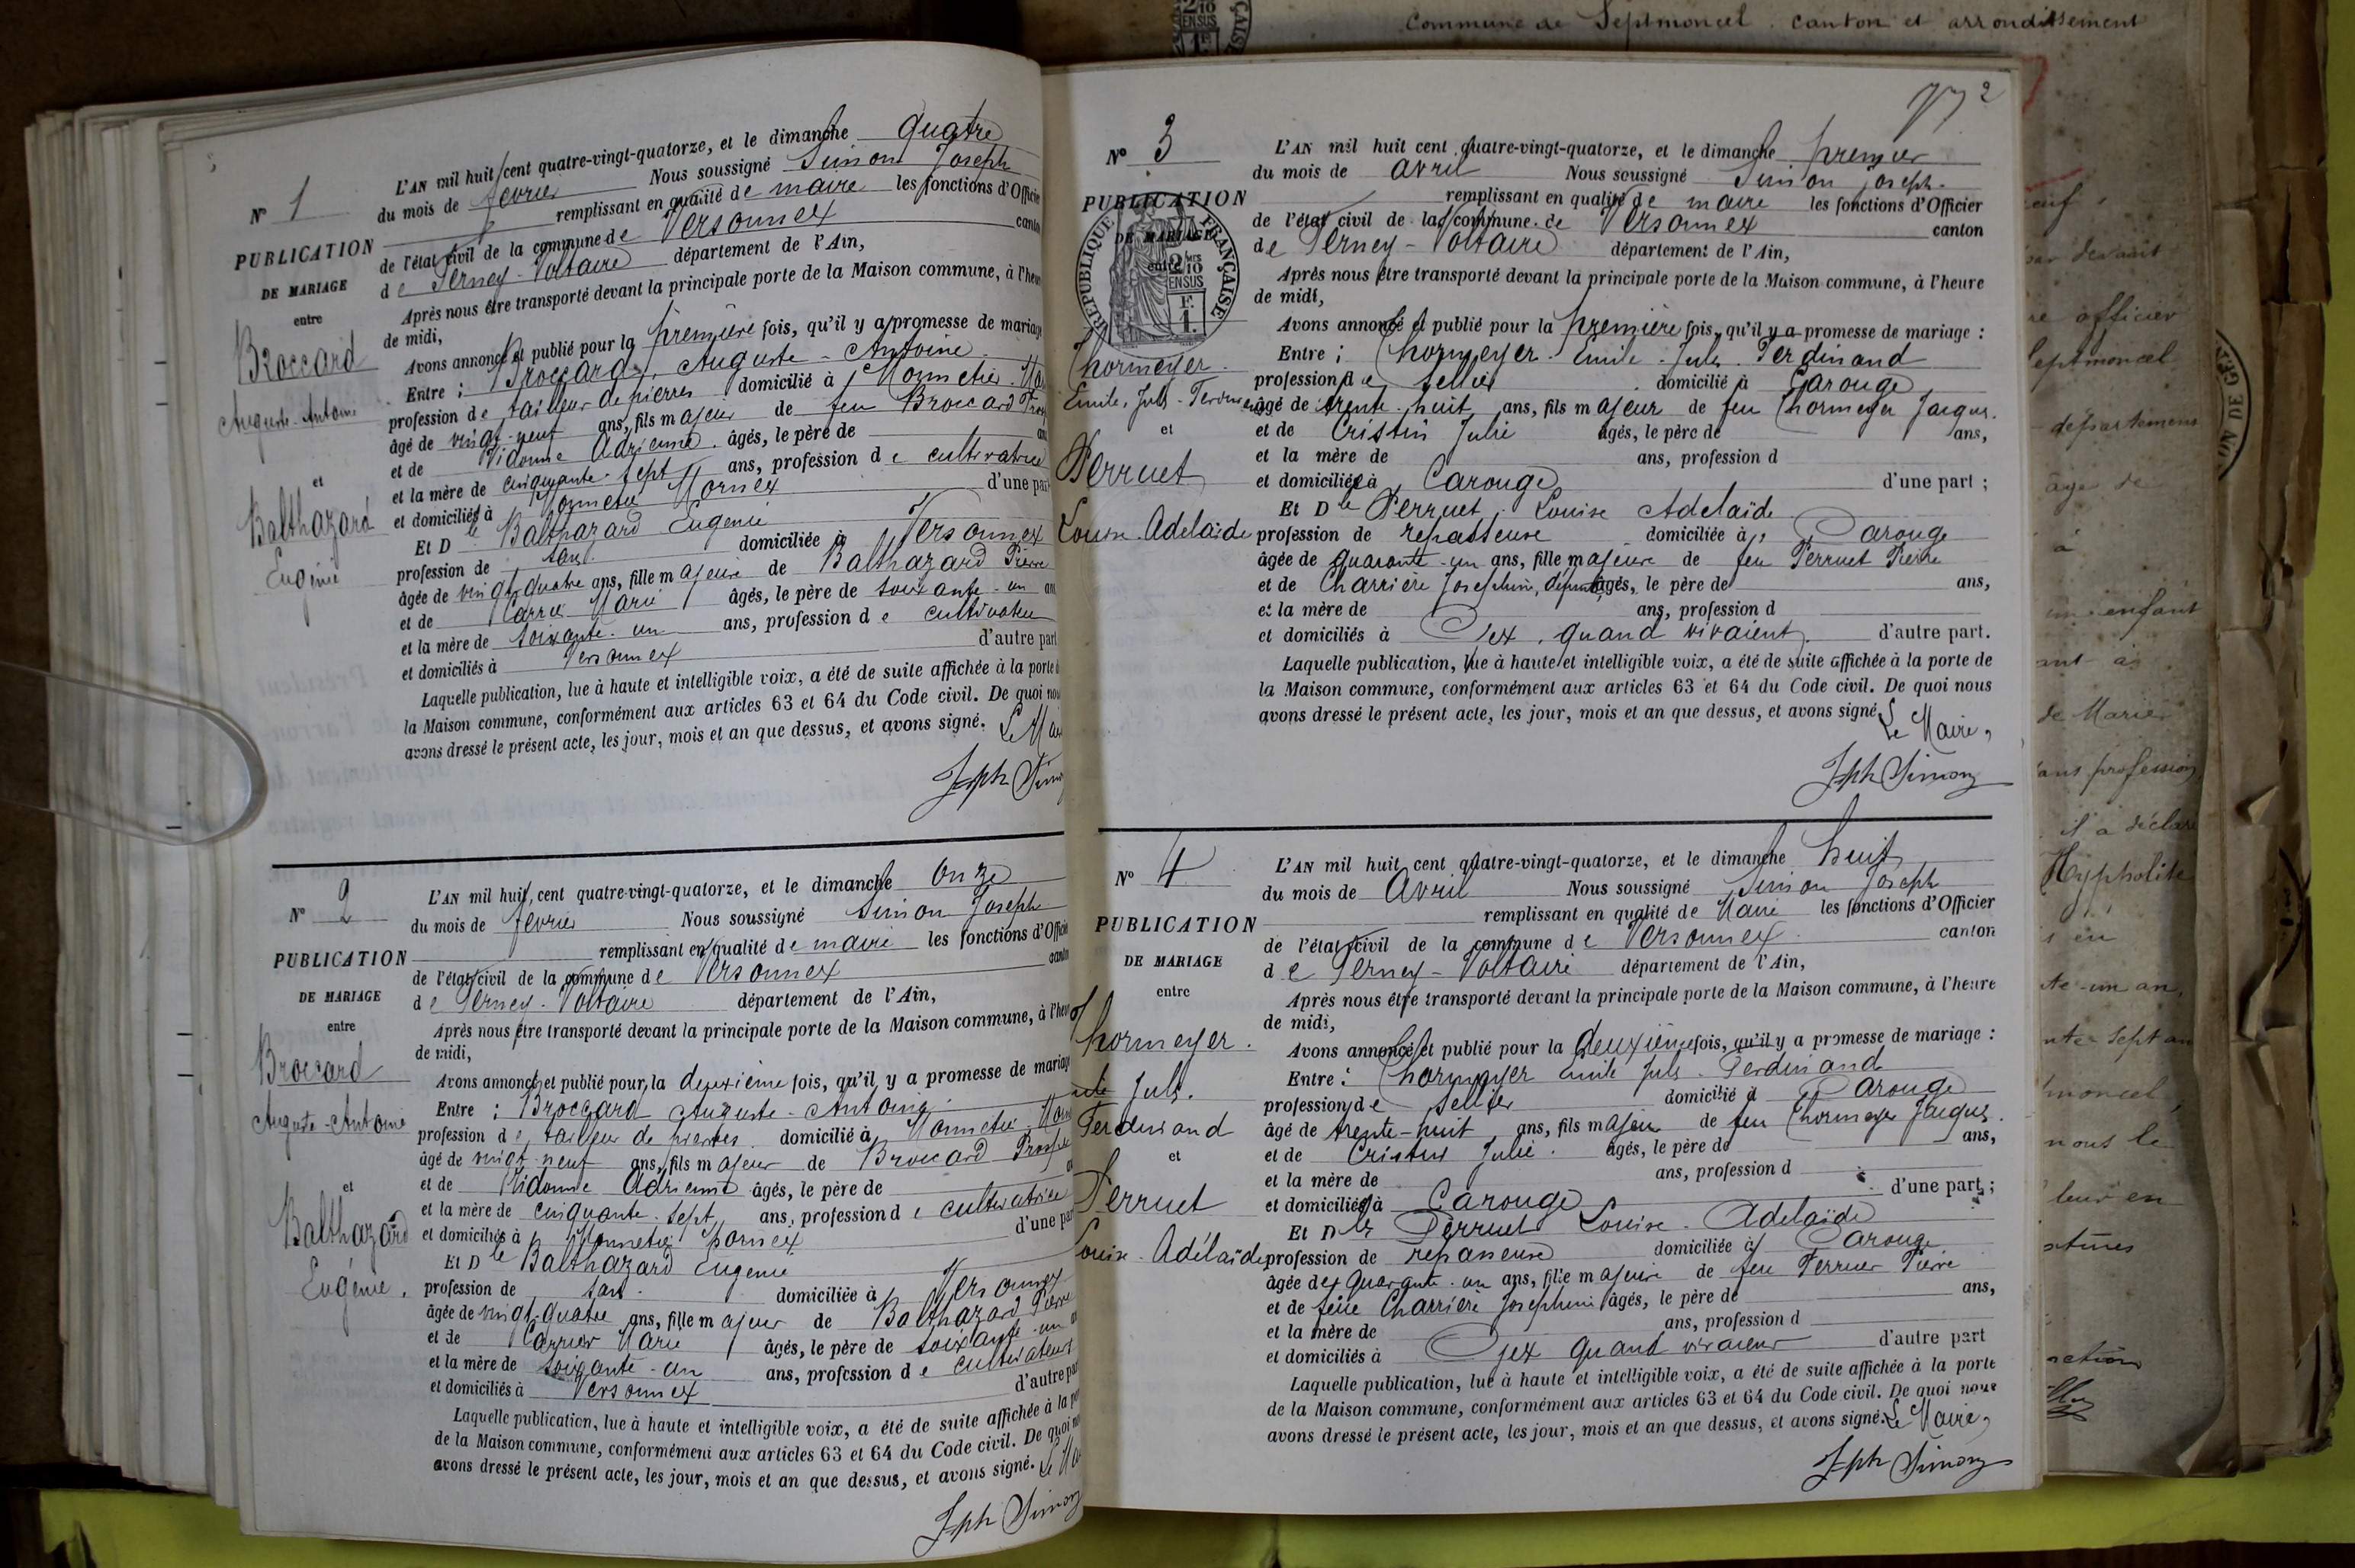 Commune de Septmoncel. canton et arrondissement
N° 1
PUBLICATION
DE MARIAGE
entre
Broccard
Auguste-Antoine
et
Balthazard
Eugénie
L'AN mil huit cent quatre-vingt-quatorze, et le dimanche quatre
du mois de fevrier Nous soussigné Simon Joseph
remplissant en qualité de maire les fonctions d'Officier
de l'état civil de la commune de Versonnex canton
de Ferney-Voltaire département de l'Ain,
Après nous être transporté devant la principale porte de la Maison commune, à l'heure
de midi,
Avons annoncé et publié pour la première fois, qu'il y a promesse de mariage
Entre : Broccard, Auguste-Antoine
profession de tailleur de pierres domicilié à Monnetier-
âgé de vingt-neuf ans, fils majeur de feu Broccard
et de Vidonne Adrienne. âgés, le père de
et la mère de cinquante-sept ans, profession de cultivatrice
et domiciliés à Monnetier Mornex d'une part
Et Dlle Balthazard Eugenie
profession de sans domiciliée à Versonnex
âgée de vingt quatre ans, fille majeure de Balthazard Pierre
et de Carrier Marie âgés, le père de soixante-un
et la mère de soixante-un ans, profession de cultivateur
et domiciliés à Versonnex d'autre part
Laquelle publication, lue à haute et intelligible voix, a été de suite affichée à la porte
la Maison commune, conformément aux articles 63 et 64 du Code civil. De quoi nous
avons dressé le présent acte, les jour, mois et an que dessus, et avons signé. Le Maire
Jph Simon
N° 2
PUBLICATION
DE MARIAGE
entre
Broccard
Auguste-Antoine
et
Balthazard
Eugénie.
L'AN mil huit cent quatre-vingt-quatorze, et le dimanche onze
du mois de fevrier Nous soussigné Simon Joseph
remplissant en qualité de maire les fonctions d'Officier
de l'état civil de la commune de Versonnex canton
de Ferney-Voltaire département de l'Ain,
Après nous être transporté devant la principale porte de la Maison commune, à l'heure
de midi,
Avons annoncé et publié pour la deuxième fois, qu'il y a promesse de mariage
Entre : Broccard Auguste-Antoine
profession de tailleur de pierres domicilié à Monnetier
âgé de vingt-neuf ans, fils majeur de Broccard Prosper
et de Vidonne Adrienne âgés, le père de
et la mère de cinquante-sept ans, profession de cultivatrice
et domiciliés à Monnetier Mornex d'une part
Et Dlle Balthazard Eugenie
profession de sans domiciliée à Versonnex
âgée de vingt-quatre ans, fille majeur de Balthazard Pierre
et de Carrier Marie âgés, le père de soixante-un
et la mère de soixante-un ans, profession de cultivateurs
et domiciliés à Versonnex d'autre part
Laquelle publication, lue à haute et intelligible voix, a été de suite affichée à la
de la Maison commune, conformément aux articles 63 et 64 du Code civil. De quoi
avons dressé le présent acte, les jour, mois et an que dessus, et avons signé. Le
Jph Simon
2
N° 3
PUBLICATION
DE MARIAGE
entre
RÉPUBLIQUE FRANÇAISE
2/10
EN SUS
F.
1.
Thormeyer.
Emile, Juls-Ferdinand
et
Perruet
Louise-Adelaïde
L'AN mil huit cent quatre-vingt-quatorze, et le dimanche premier
du mois de avril Nous soussigné Simon Joseph.
remplissant en qualité de maire les fonctions d'Officier
de l'état civil de la commune de Versonnex canton
de Ferney-Voltaire département de l'Ain,
Après nous être transporté devant la principale porte de la Maison commune, à l'heure
de midi,
Avons annoncé et publié pour la première fois, qu'il y a promesse de mariage :
Entre : Thormeyer. Emile. Juls. Ferdinand
profession de sellier domicilié à Carouge
âgé de trente-huit ans, fils majeur de feu Thormeyer Jacques.
et de Cristin Julie âgés, le père de ans,
et la mère de ans, profession d
et domiciliés à Carouge d'une part ;
Et Dlle Perruet. Louise Adelaïde
profession de repasseuse domiciliée à Carouge
âgée de quarante-un ans, fille majeure de feu Perruet Pierre
et de Charrière Josephine, âgés, le père de ans,
et la mère de ans, profession d
et domiciliés à Gex, quand vivaient, d'autre part.
Laquelle publication, lue à haute et intelligible voix, a été de suite affichée à la porte de
la Maison commune, conformément aux articles 63 et 64 du Code civil. De quoi nous
avons dressé le présent acte, les jour, mois et an que dessus, et avons signé. Le Maire,
Jph Simon
N° 4
PUBLICATION
DE MARIAGE
entre
Thormeyer.
Juls.
Ferdinand
et
Perruet
Louise-Adélaïde
L'AN mil huit cent quatre-vingt-quatorze, et le dimanche huit
du mois de Avril Nous soussigné Simon Joseph
remplissant en qualité de Maire les fonctions d'Officier
de l'état civil de la commune de Versonnex canton
de Ferney-Voltaire département de l'Ain,
Après nous être transporté devant la principale porte de la Maison commune, à l'heure
de midi,
Avons annoncé et publié pour la deuxième fois, qu'il y a promesse de mariage :
Entre : Thormeyer Emile Juls-Ferdinand
profession de sellier domicilié à Carouge
âgé de trente-huit ans, fils majeur de feu Thormeyer Jacques.
et de Cristin Julie. âgés, le père de ans,
et la mère de ans, profession d
et domiciliés à Carouge d'une part ;
Et Dlle Perruet Louise-Adelaïde
profession de repasseuse domiciliée à Carouge
âgée de quarante-un ans, fille majeure de feu Perruet Pierre
et de feue Charrière Josephine âgés, le père de ans,
et la mère de ans, profession d
et domiciliés à Gex quand vivaient d'autre part
Laquelle publication, lue à haute et intelligible voix, a été de suite affichée à la porte
de la Maison commune, conformément aux articles 63 et 64 du Code civil. De quoi nous
avons dressé le présent acte, les jour, mois et an que dessus, et avons signé. Le Maire,
Jph Simon
officier
septmoncel
département
âge de
à
enfant
de Marie
sans profession
il a déclaré
Hypholite
en
un an,
sept an
nous le
leur en